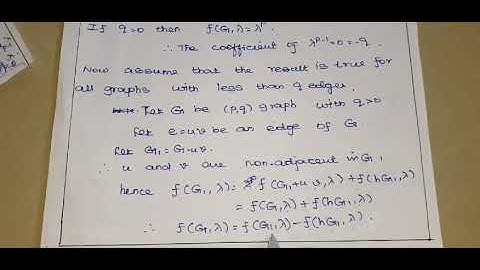 If q=0 then f(G,λ)=λᵖ.
∴ The coefficient of λᵖ⁻¹=0=-q.
Now assume that the result is true for
all graphs with less than q edges.
Let G be (p,q) graph with q>0
Let e=uv be an edge of G
Let G₁=G-uv.
∴ u and v are non-adjacent in G₁
hence f(G₁,λ)= f(G₁+uv,λ)+f(hG₁,λ)
= f(G,λ)+f(hG₁,λ)
∴ f(G,λ)=f(G₁,λ)-f(hG₁,λ).